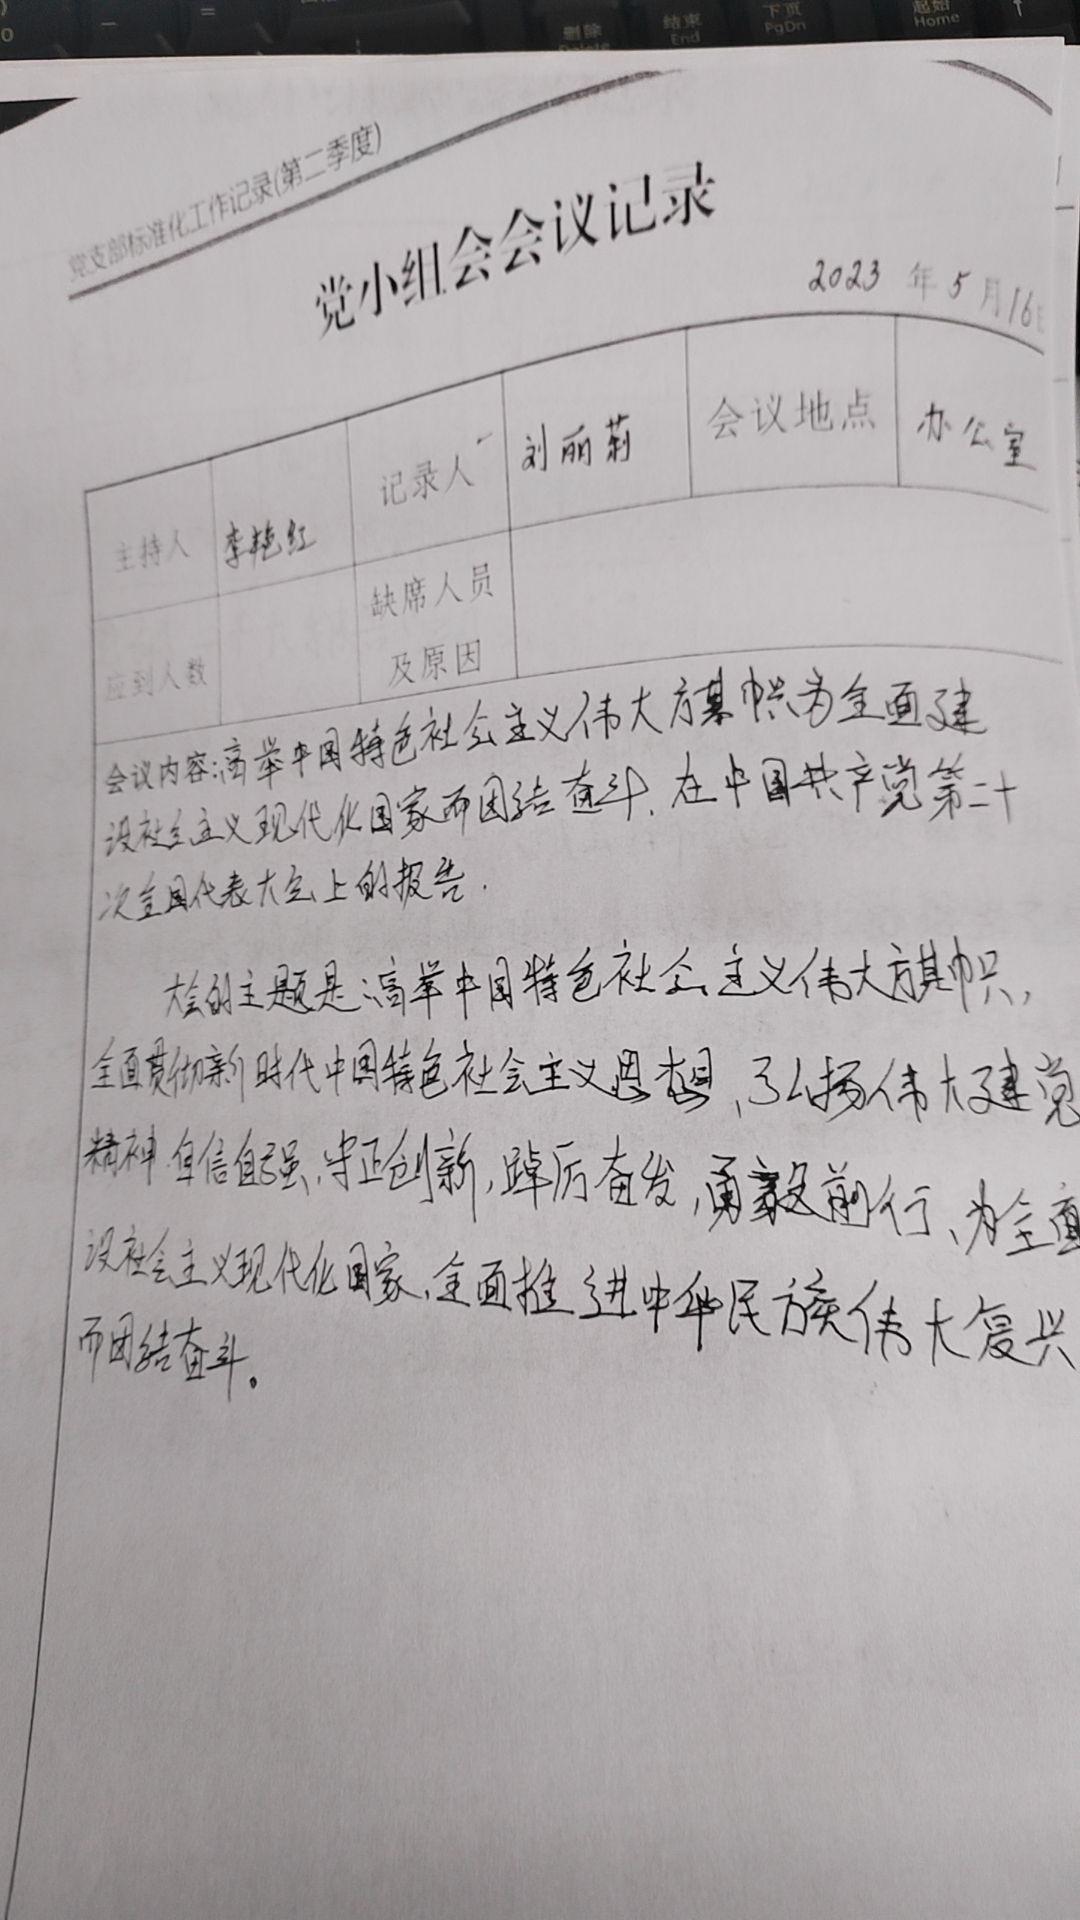 删除
Delete
结束
End
下页
PgDn
起始
Home
党支部标准化工作记录(第二季度)
党小组会会议记录
2023 年 5 月 16日
主持人 李艳红 记录人 刘丽莉 会议地点 办公室
应到人数 缺席人员
及原因
会议内容:高举中国特色社会主义伟大旗帜为全面建
设社会主义现代化国家而团结奋斗.在中国共产党第二十
次全国代表大会上的报告.
大会的主题是:高举中国特色社会主义伟大旗帜,
全面贯彻新时代中国特色社会主义思想,弘扬伟大建党
精神.自信自强,守正创新,踔厉奋发,勇毅前行、为全面
设社会主义现代化国家、全面推进中华民族伟大复兴
而团结奋斗。